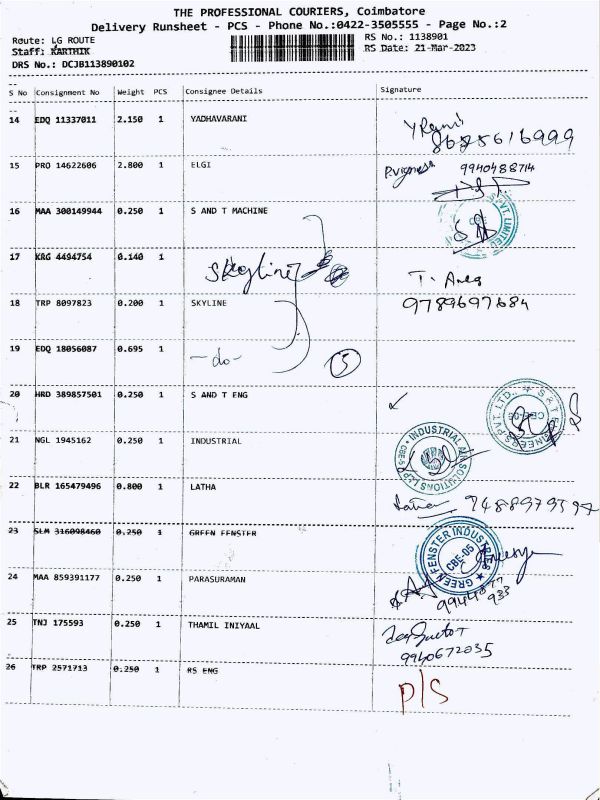 THE PROFESSIONAL COURIERS, Coimbatore
Delivery Runsheet - PCS - Phone No.:0422-3505555 - Page No.:2
Route: LG ROUTE
RS No.: 1138901
Staff: KARTHIK
RS Date: 21-Mar-2023
DRS No.: DCJB113890102
S No Consignment No Weight PCS Consignee Details Signature
14 EDQ 11337011 2.150 1 YADHAVARANI
15 PRO 14622606 2.800 1 ELGI 9940488714
16 MAA 300149944 0.250 1 S AND T MACHINE
PVT. LIMITED
17 KRG 4494754 0.140 1 Skyline
18 TRP 8097823 0.200 1 SKYLINE 9789697684
19 EDQ 18056087 0.695 1 -do- 5
20 HRD 389857501 0.250 1 S AND T ENG
PVT. LTD., S & T CBE-05
21 NGL 1945162 0.250 1 INDUSTRIAL
INDUSTRIAL SOLUTIONS LLP CBE-5
22 BLR 165479496 0.800 1 LATHA
23 SLM 316098460 0.250 1 GREEN FENSTER
GREEN FENSTER INDUSTRIES CBE-05
24 MAA 859391177 0.250 1 PARASURAMAN
25 TNJ 175593 0.250 1 THAMIL INIYAAL
9940672035
26 TRP 2571713 0.250 1 RS ENG P/S